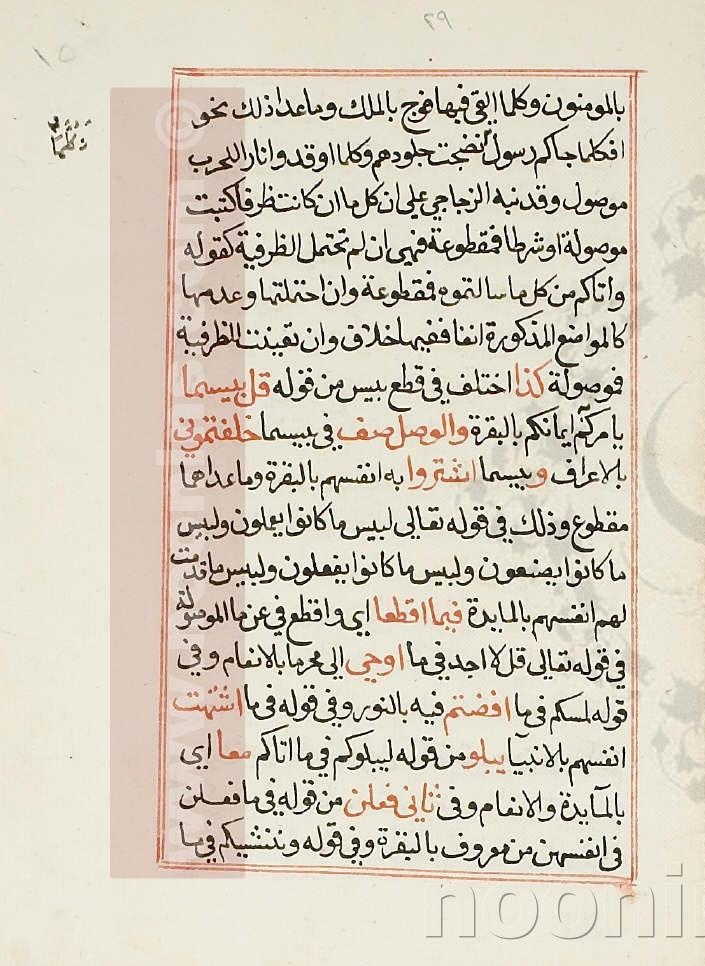 ٢٩
١٥
بالمومنون وكلما القي فيها فوج بالملك وما عدا ذلك نحو
افكلما جاكم رسول نضجت جلودهم وكلما اوقدوا نارا للحرب
موصول وقد نبه الزجاجي علي ان كل ما ان كانت ظرفا كتبت
موصولة او شرطا فمقطوعة فهي ان لم تحتمل الظرفية كقوله
واتاكم من كل ما سالتموه فمقطوعة وان احتملتها وعدمها
كالمواضع المذكورة انفا ففيها خلاف وان تعينت للظرفية
فموصولة كذا اختلف في قطع بيس من قوله قل بيسما
يامركم ايمانكم بالبقرة والوصل صف في بيسما خلفتموني
بالاعراف وبيسما اشتروا به انفسهم بالبقرة وما عداهما
مقطوع وذلك في قوله تعالي لبيس ما كانوا يعملون ولبيس
ما كانوا يصنعون ولبيس ما كانوا يفعلون ولبيس ما قدمت
لهم انفسهم بالمايدة فيما اقطعا اي واقطع في عن ما الموصولة
في قوله تعالي قل لا اجد في ما اوحي الي محرما بالانعام وفي
قوله لمسكم في ما افضتم فيه بالنور وفي قوله في ما اشتهت
انفسهم بالانبيآ يبلو من قوله ليبلوكم في ما اتاكم معا اي
بالمآيدة والانعام وفي ثاني فعلن من قوله في ما فعلن
في انفسهن من معروف بالبقرة وفي قوله وننشيكم في ما
noonir